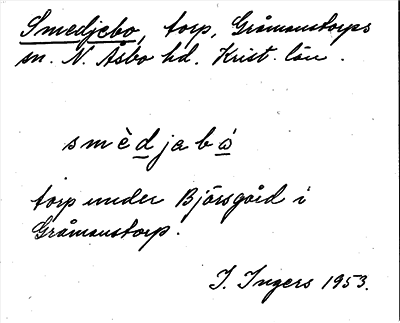 Smedjebo, torp, Gråmanstorps
sn. N. Åsbo hd. Krist. län.
smèdjabó
torp under Bjärsgård i
Gråmanstorp.
I. Ingers 1953.